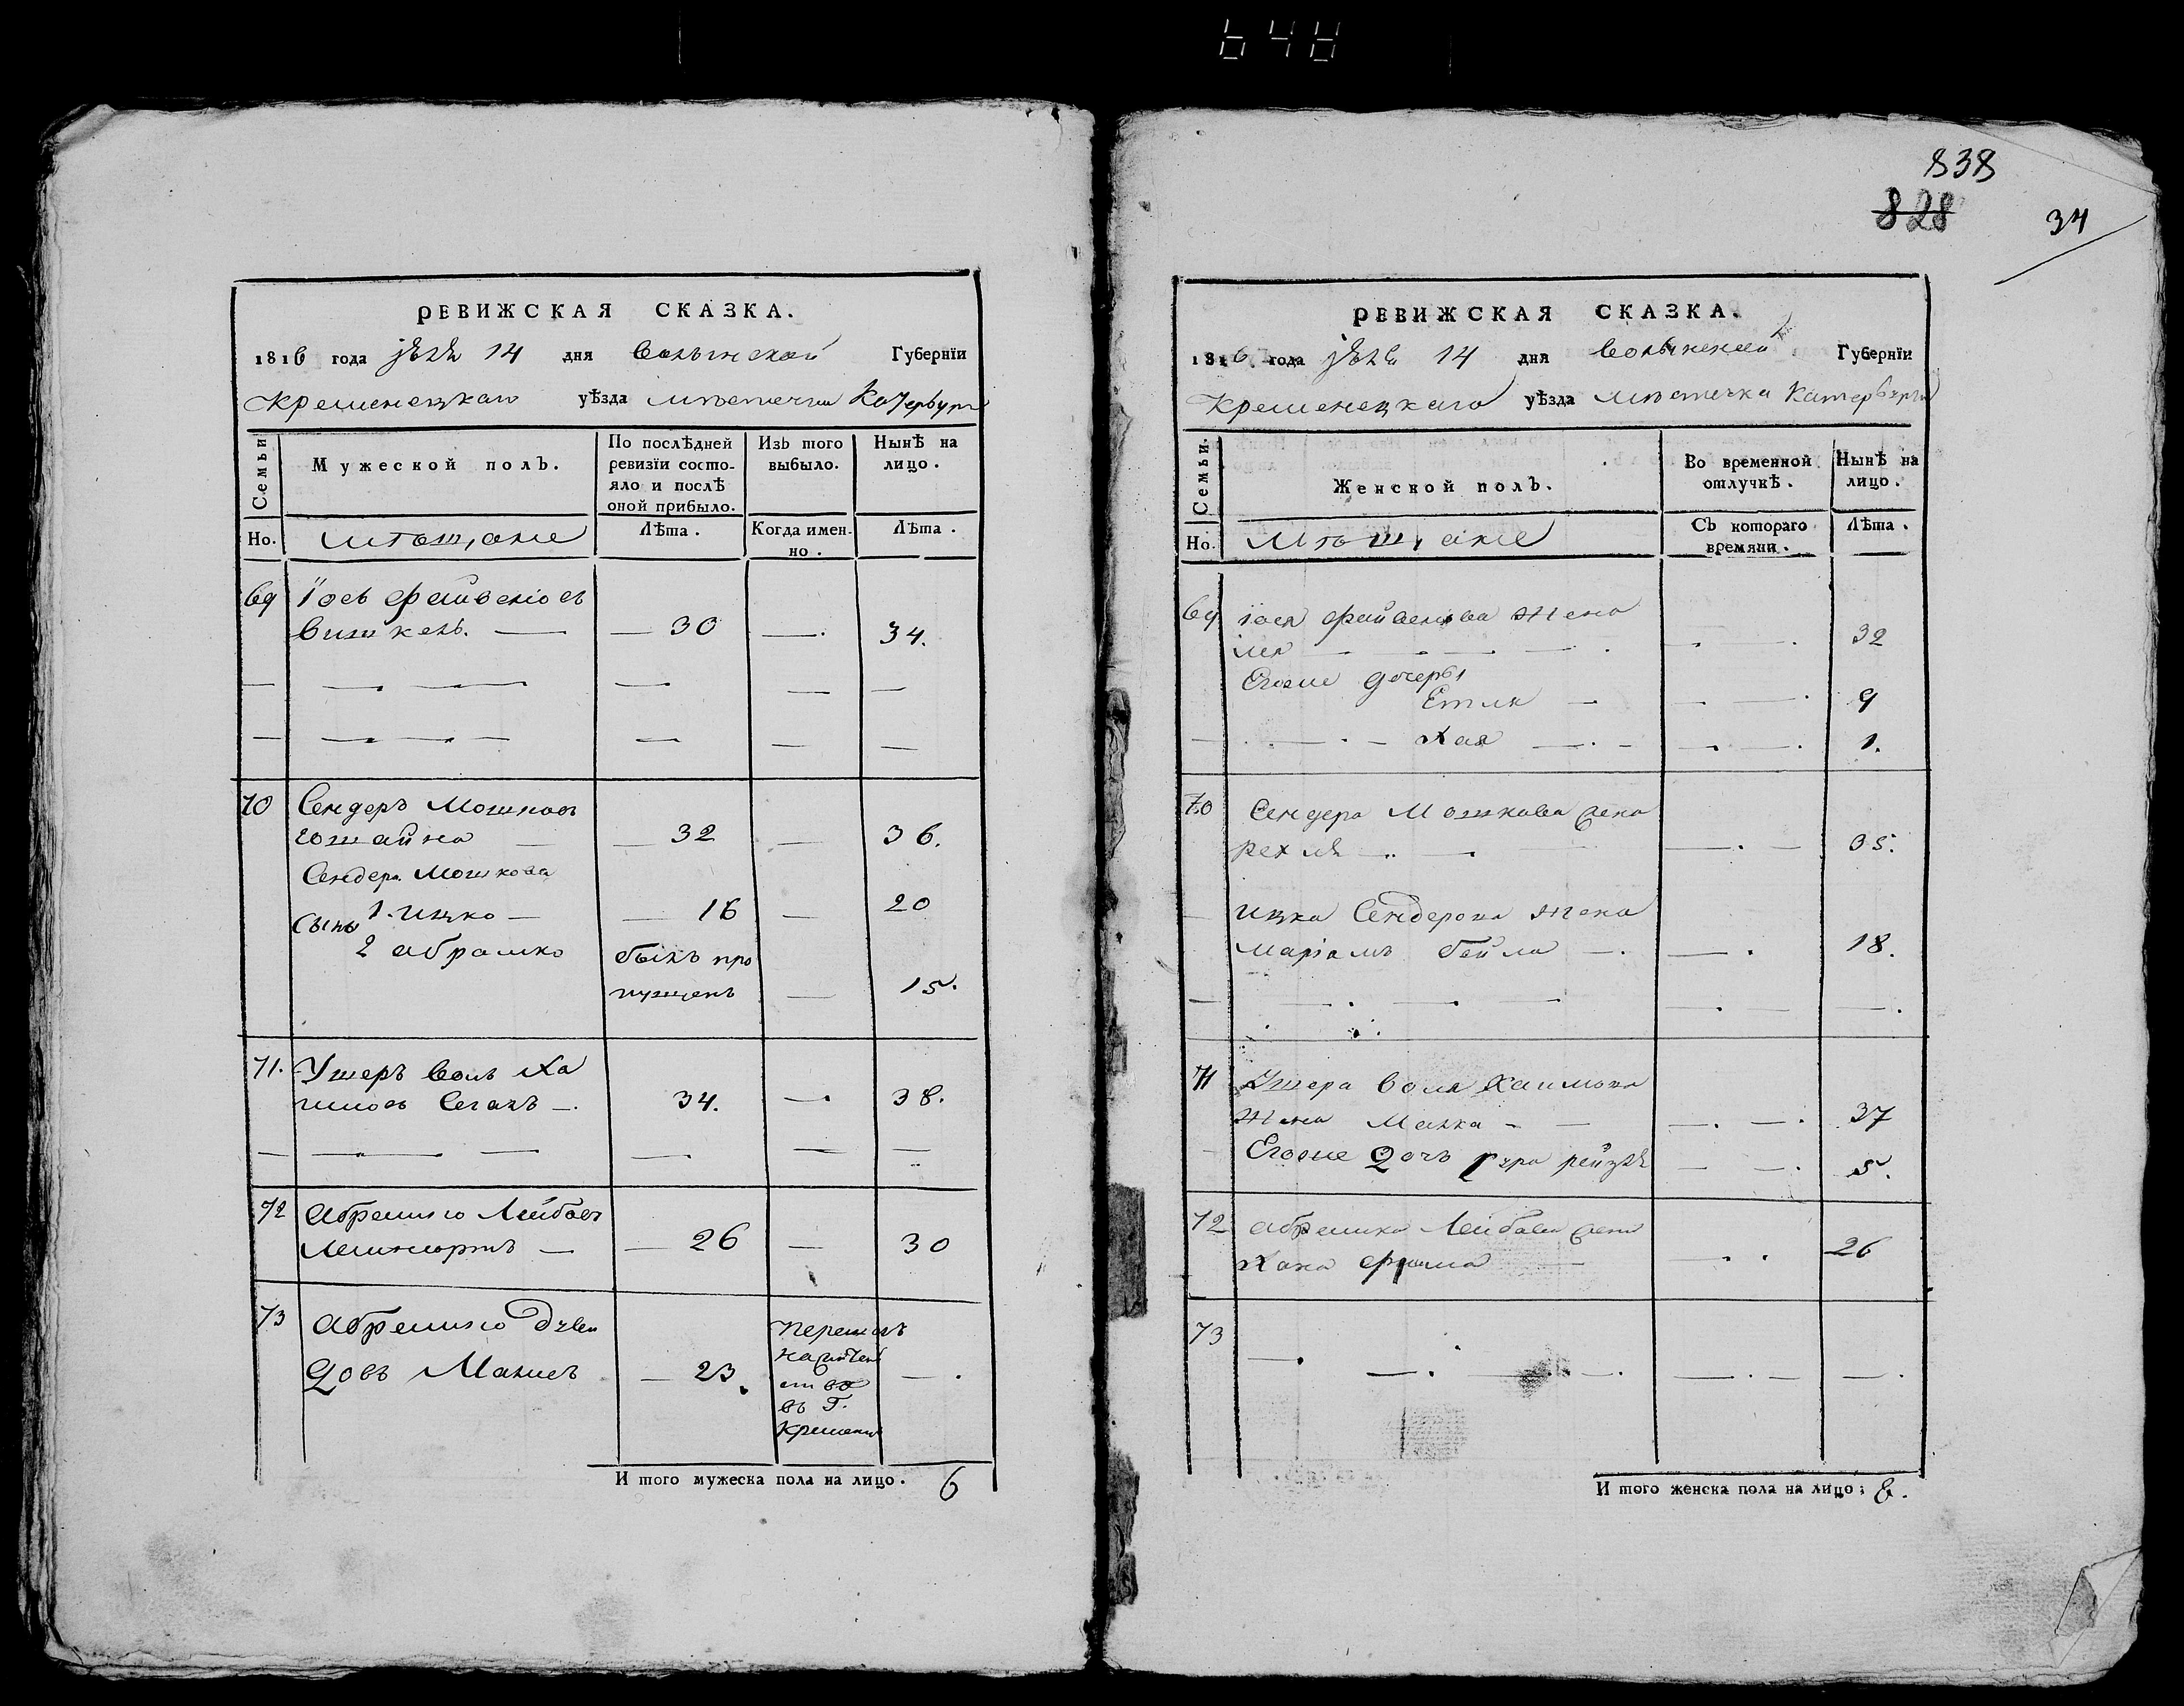 648
РЕВИЖСКАЯ СКАЗКА.
1816 года іюля 14 дня Волынской Губернїи
Кременецкаго уѣзда мѣстечка Катербурга
Семьи
Мужеской полъ.
По послѣдней ревизїи состо-
яло и послѣ
оной прибыло.
Изъ того выбыло.
Нынѣ на лицо.
Но. мѣщане Лѣта. Когда имен-
но. Лѣта.
69 Іось Файвеліовъ
Вишкель. — — 30 —. 34.
70 Сендеръ Мошковъ
— — 32 — 36.
Сендера Мошкова
Сыны 1. Ицко — — 16 — 20
2 Абрамко былъ про
пущенъ — 15.
71. Ушеръ Воль Ха
имовъ Сегалъ —. 34. —. 38.
72 Абрамко Лейбовъ
— — 26 — 30
73 Абрамко
Манисъ — 23. —.
Перешолъ
въ Г.
Кременецъ
И того мужеска пола на лицо. 6
838
828
34
РЕВИЖСКАЯ СКАЗКА.
1816 года іюля 14 дня Волынской Губернїи
Кременецкаго уѣзда мѣстечка Катербурга
Семьи.
Женской полъ.
Во временной отлучкѣ.
Нынѣ на лицо.
Но. Мѣщане Съ котораго времяни. Лѣта.
69 Іося Файвелова жена
Лея 32
Егоже дочеры
Етля — 9
Хая 1.
70 Сендера Мошкова жена
Рехля 35.
Ицка Сендерова жена
Маріамъ Бейла —. 18.
71 Ушера Воля Хаимова
жена Малка — 37
Егоже дочь Сура Рейзля 5.
72 Абрамка Лейбова жена
Хана Фрима 26
73
И того женска пола на лицо: 8.